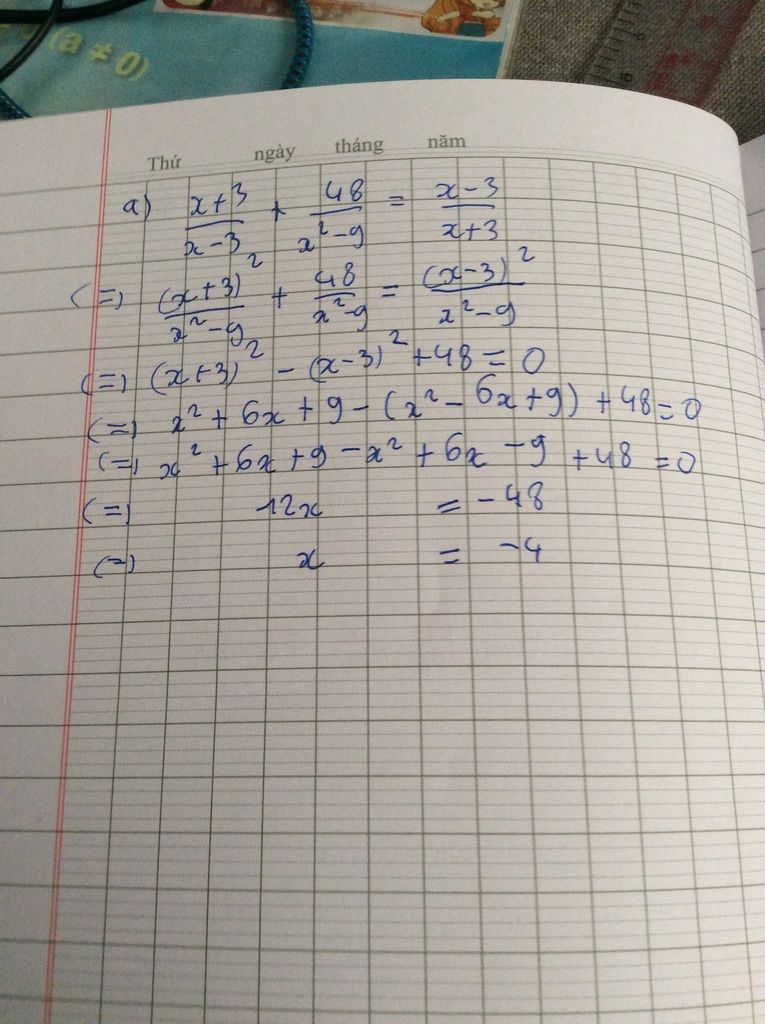 (a ≠ 0)
Thứ ngày tháng năm
a) x+3/x-3 + 48/x²-9 = x-3/x+3
(=) (x+3)²/x²-9 + 48/x²-9 = (x-3)²/x²-9
(=) (x+3)² - (x-3)² + 48 = 0
(=) x² + 6x + 9 - (x² - 6x + 9) + 48 = 0
(=) x² + 6x + 9 - x² + 6x - 9 + 48 = 0
(=) 12x = -48
(=) x = -4